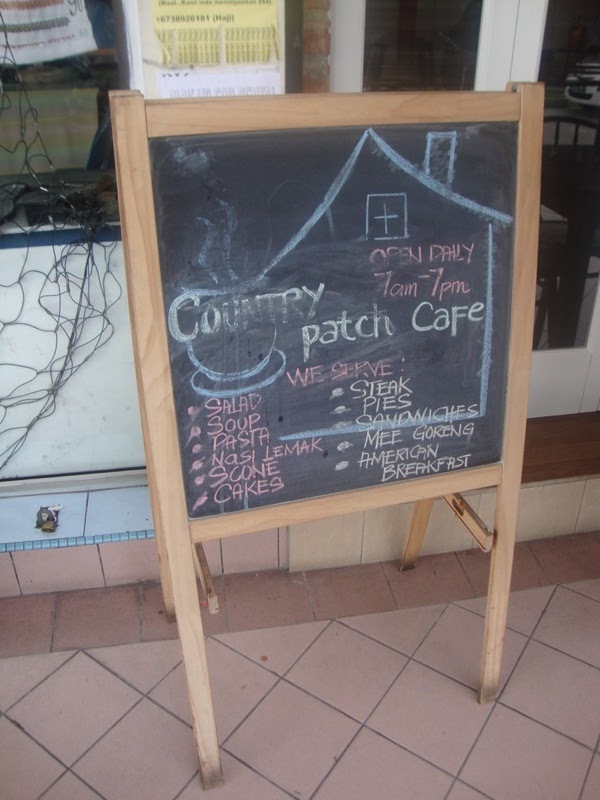 +6738926181 (Haji)
OPEN DAILY
7am-7pm
COUNTRY
patch CaFe
WE SERVE:
SALAD
SOUP
PASTA
NASI LEMAK
SCONE
CAKES
STEAK
PIES
SANDWICHES
MEE GORENG
AMERICAN
BREAKFAST